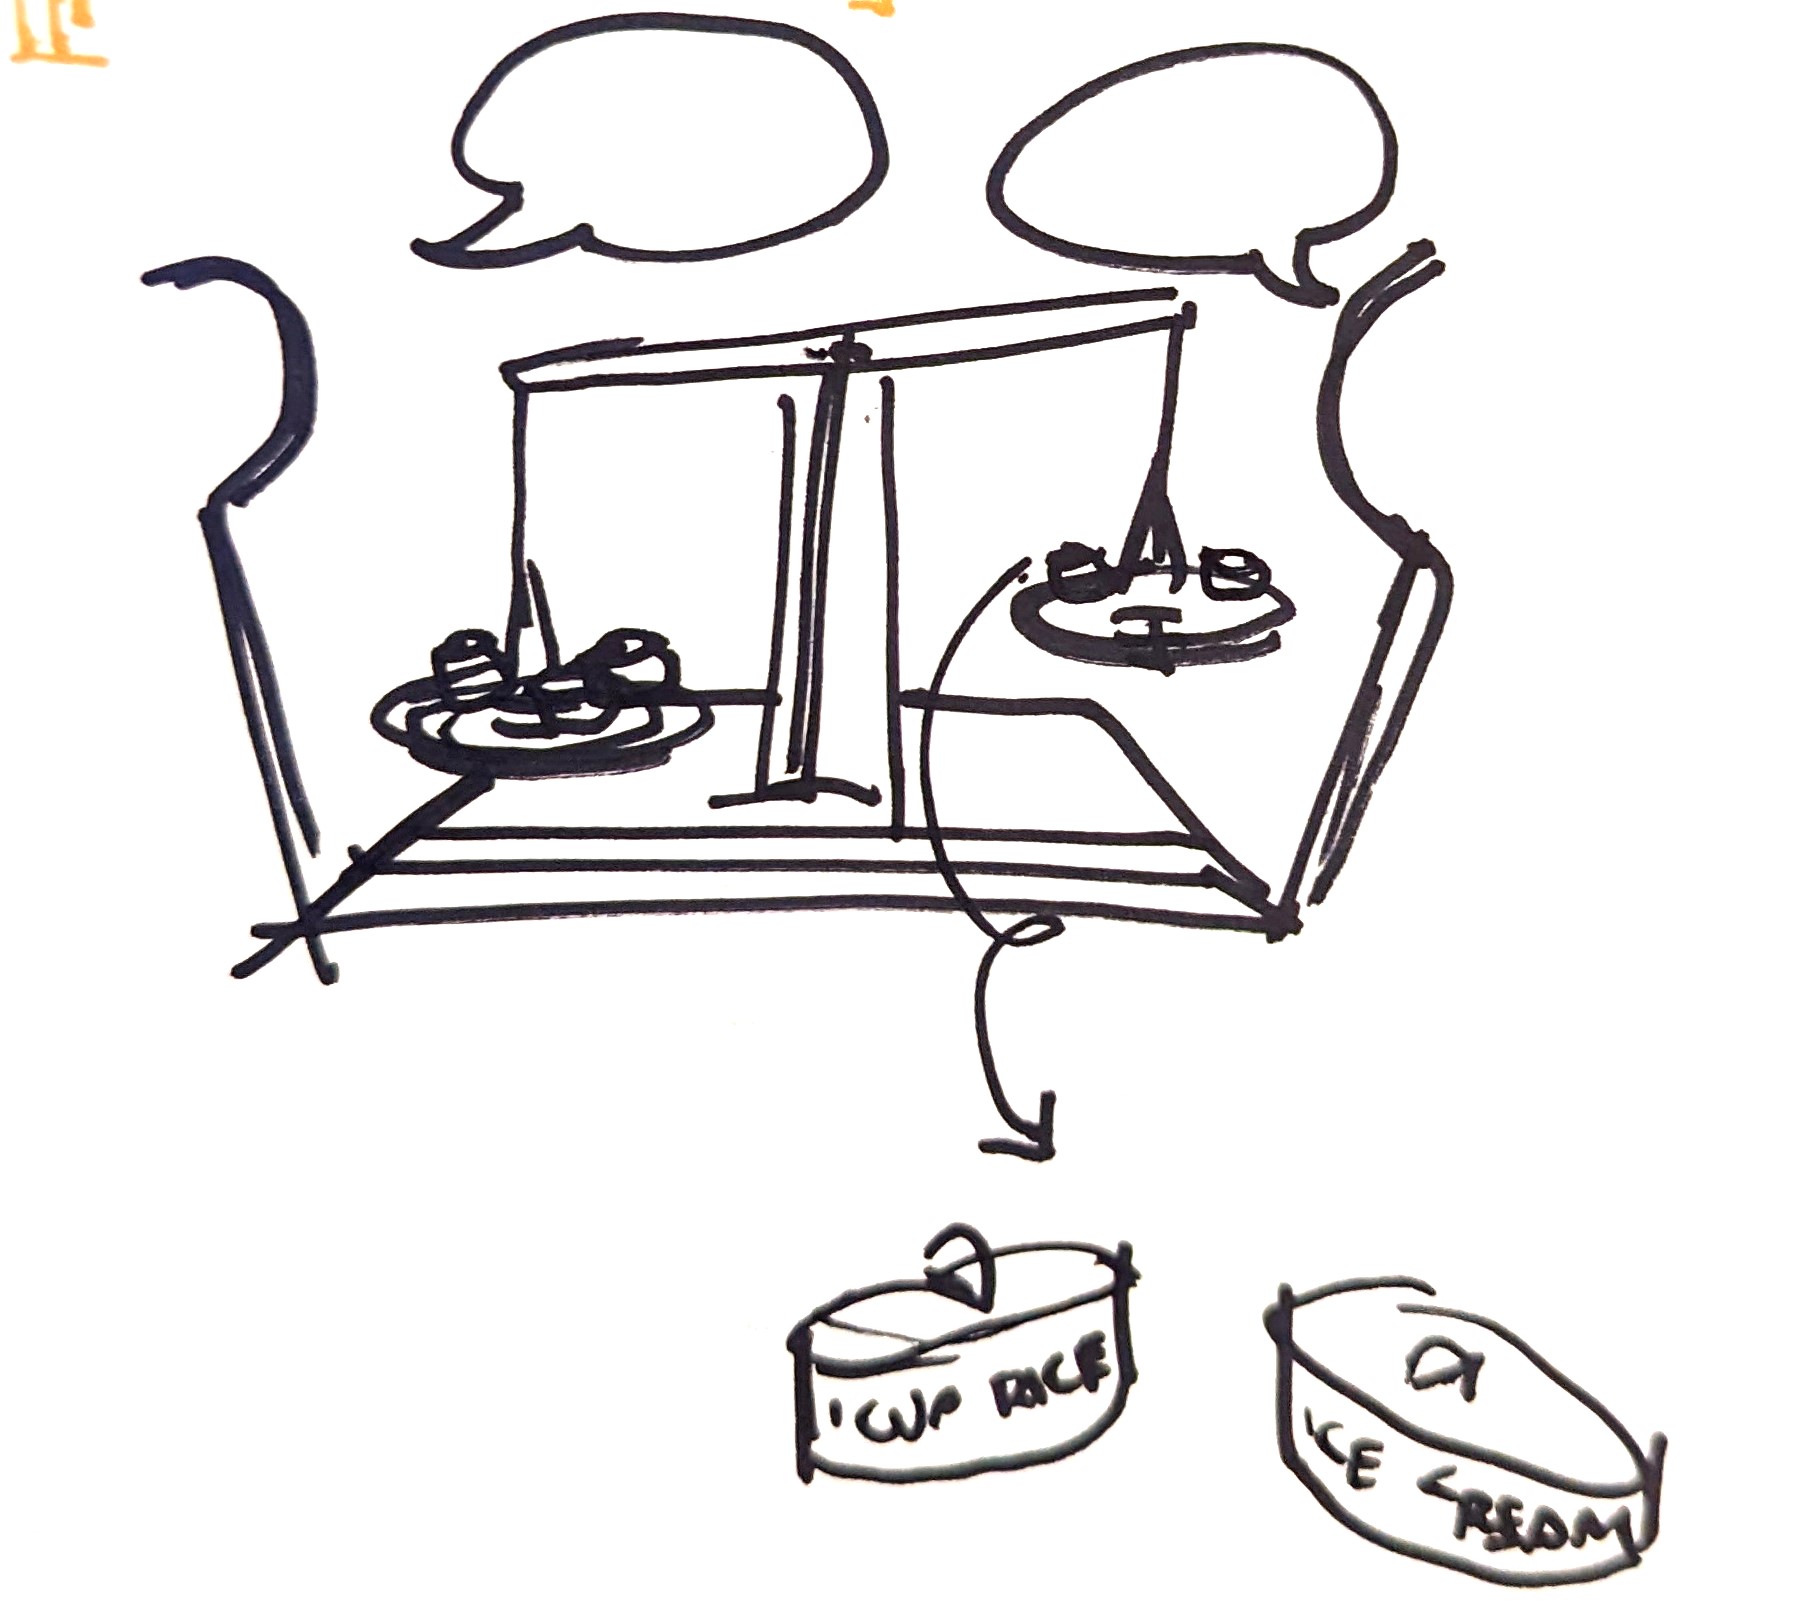 1 CUP RICE
ICE CREAM